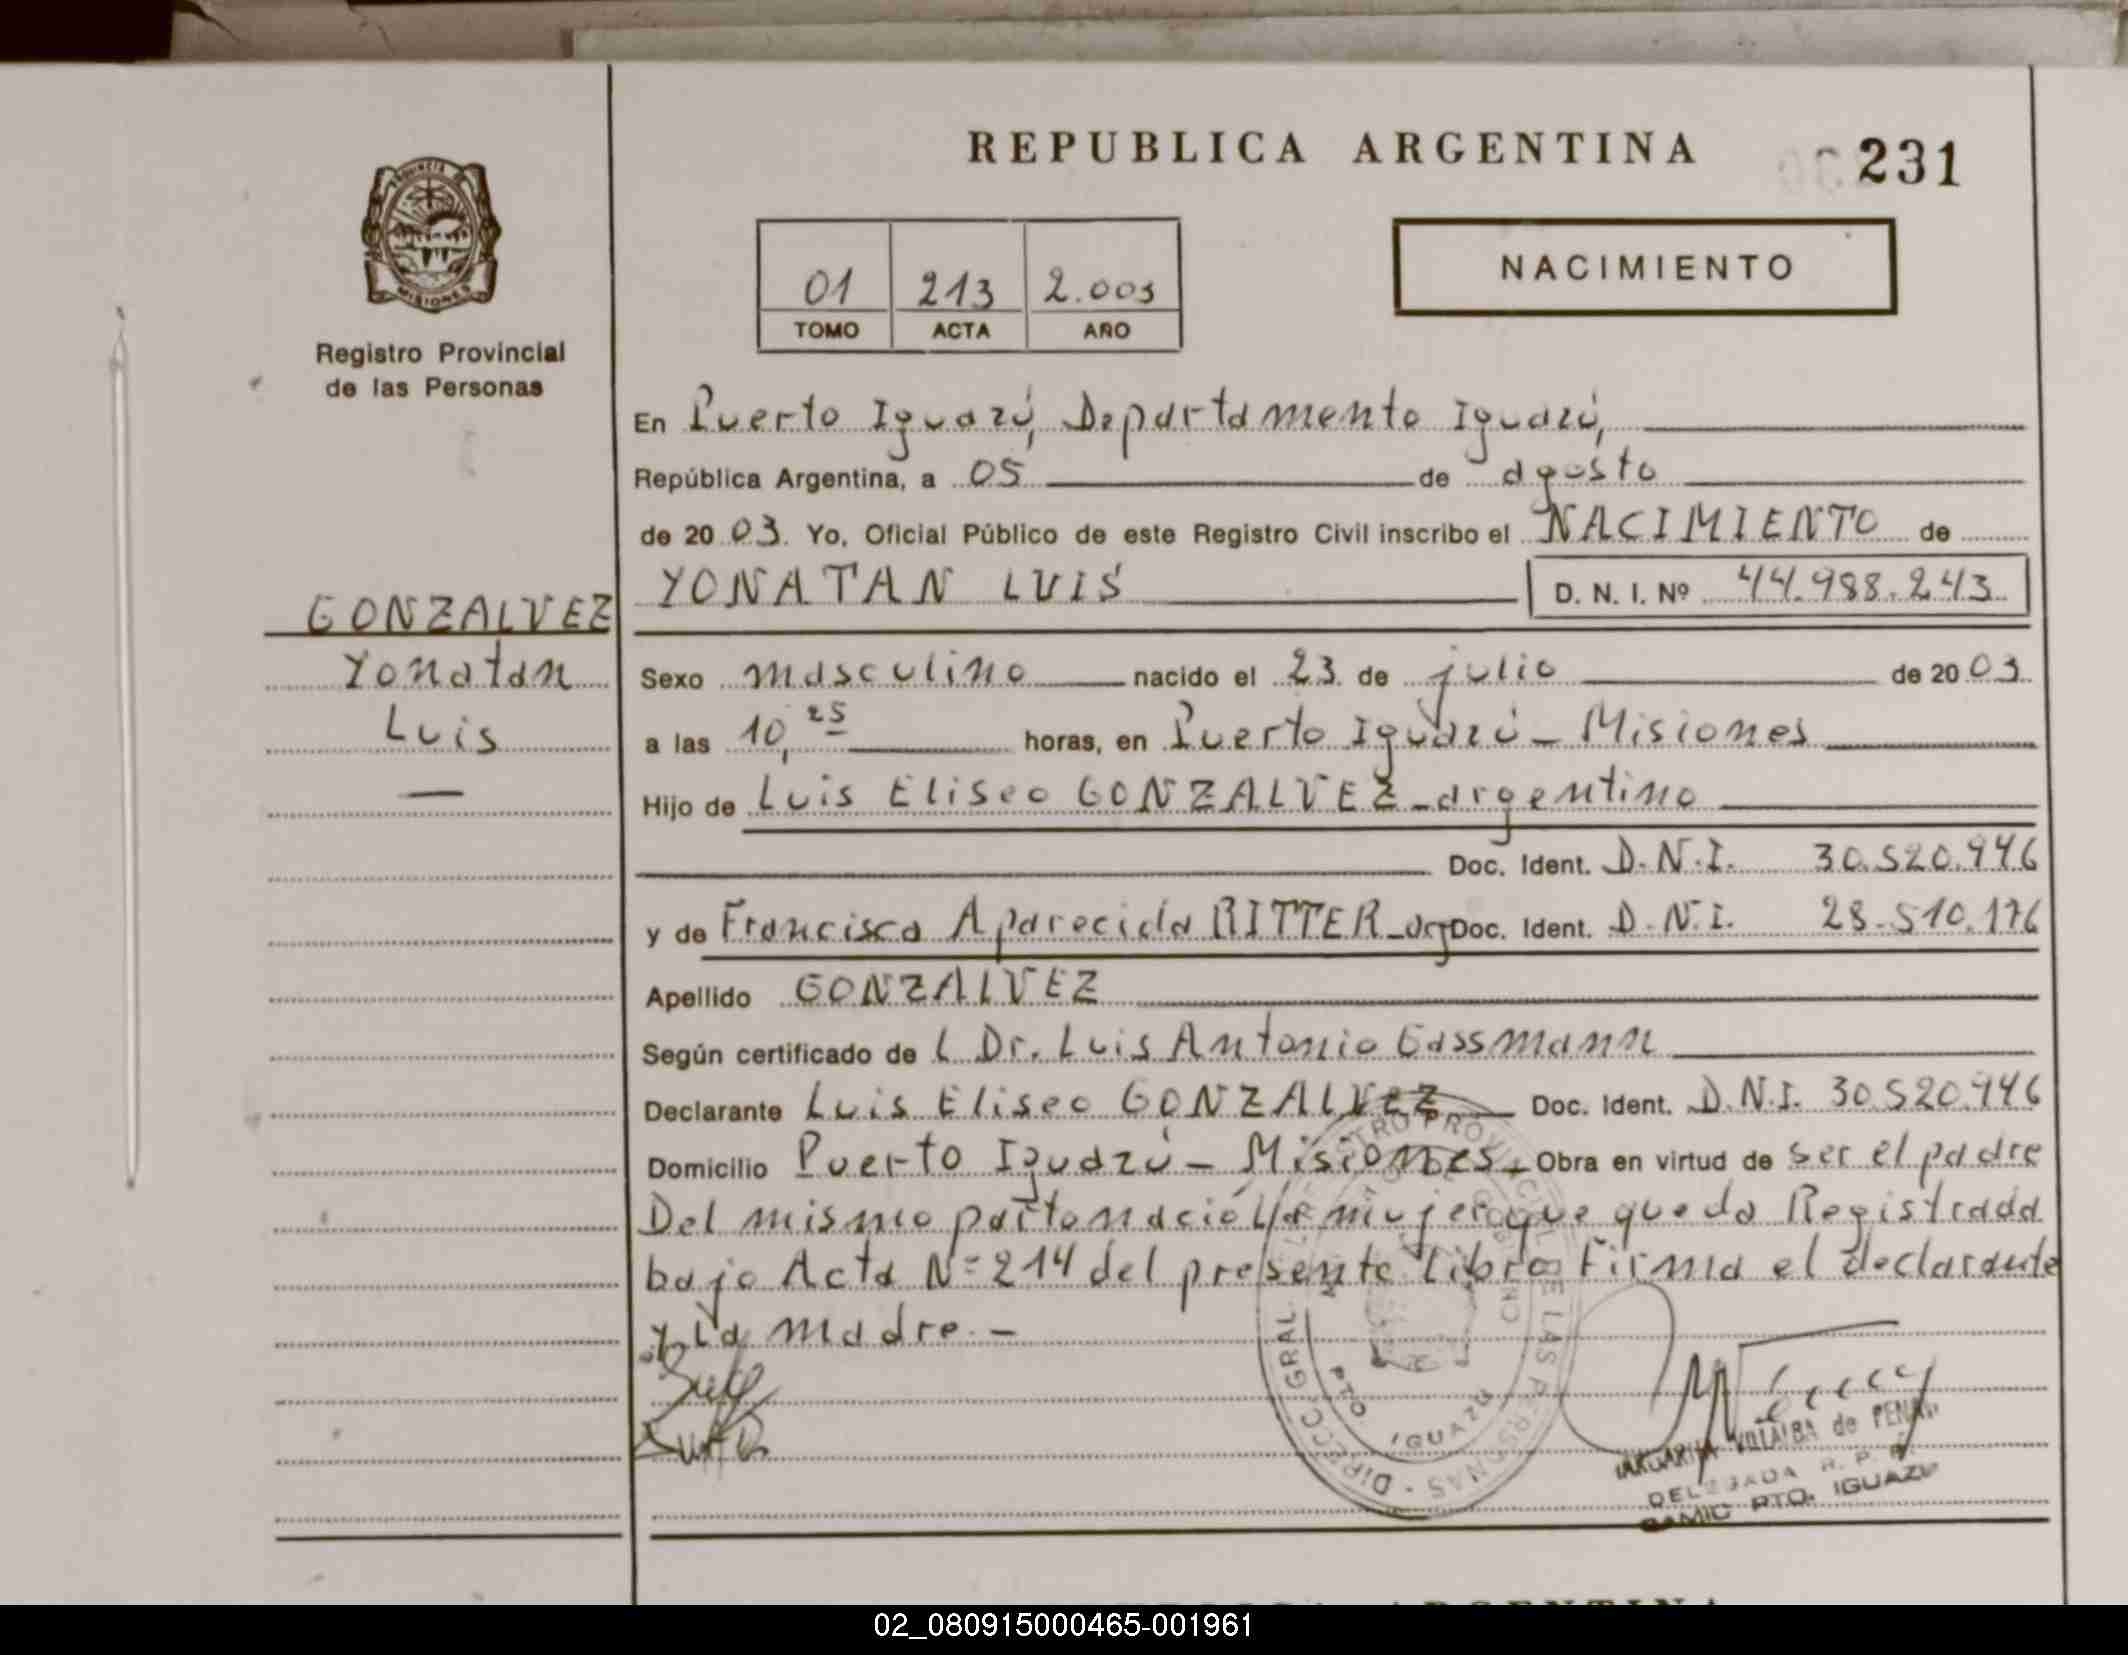 REPUBLICA ARGENTINA
231
PROVINCIA DE
MISIONES
Registro Provincial
de las Personas
01 213 2.003
TOMO ACTA AÑO
NACIMIENTO
En Puerto Iguazú, Departamento Iguazú,
República Argentina, a 05 de agosto
de 2003. Yo, Oficial Público de este Registro Civil inscribo el NACIMIENTO de
GONZALVEZ
Yonatan
Luis
YONATAN LUIS D. N. I. Nº 44.988.243
Sexo masculino nacido el 23 de julio de 2003.
a las 10,25 horas, en Puerto Iguazú - Misiones
Hijo de Luis Eliseo GONZALVEZ - argentino
Doc. Ident. D.N.I. 30.520.946
y de Francisca Aparecida RITTER - arg Doc. Ident. D.N.I. 28.510.176
Apellido GONZALVEZ
Según certificado de L Dr. Luis Antonio Gassmann
Declarante Luis Eliseo GONZALVEZ Doc. Ident. D.N.I. 30.520.946
Domicilio Puerto Iguazú - Misiones - Obra en virtud de ser el padre
Del mismo parto nació la mujer que queda Registrada
bajo Acta Nº 214 del presente Libro Firma el declarante
y La madre. -
DIRECC. GRAL. REGISTRO PROVINCIAL DE LAS PERSONAS
PTO IGUAZU
MARGARITA VILLALBA de
DELEGADA R. P. P.
SAMIC PTO. IGUAZU
02_080915000465-001961